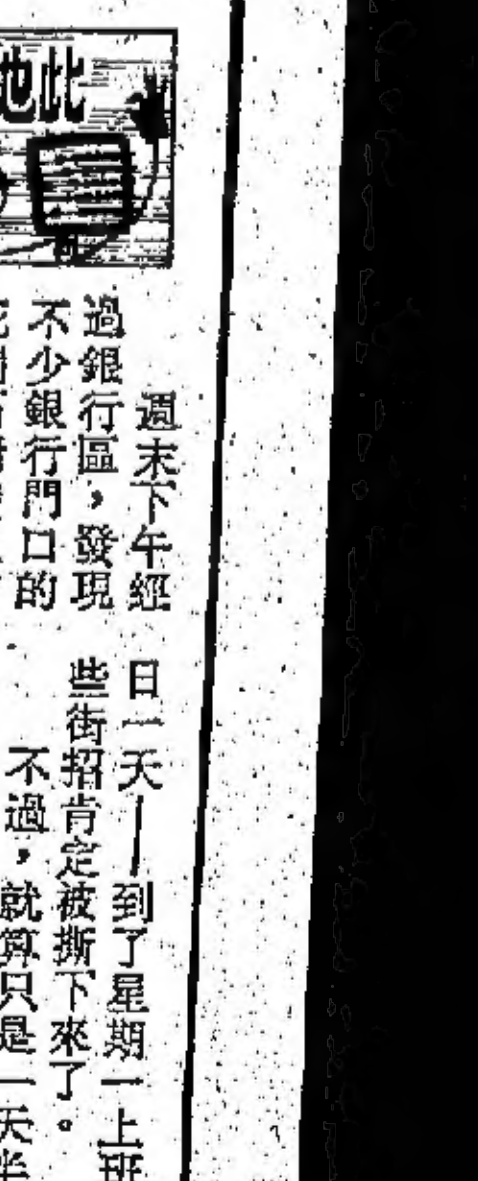 此地
週末下午經
過銀行區，發現
不少銀行門口的
日一天——到了星期一上班
些街招肯定被撕下來了。
不過，就算只是一天半